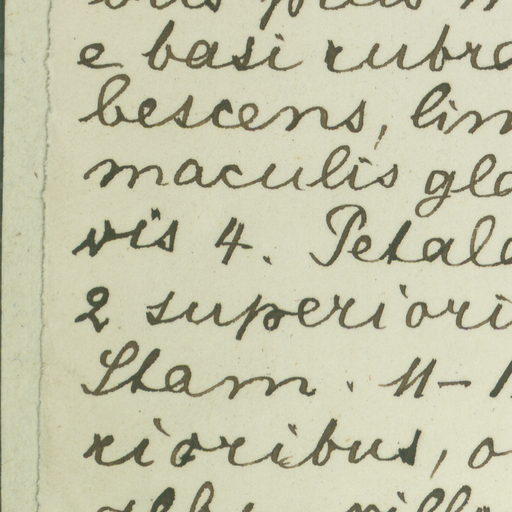 e basi rubro
bescens, lim
maculis gla
vis 4. Petala
2 superiori
Stam. 11-1
rioribus, o